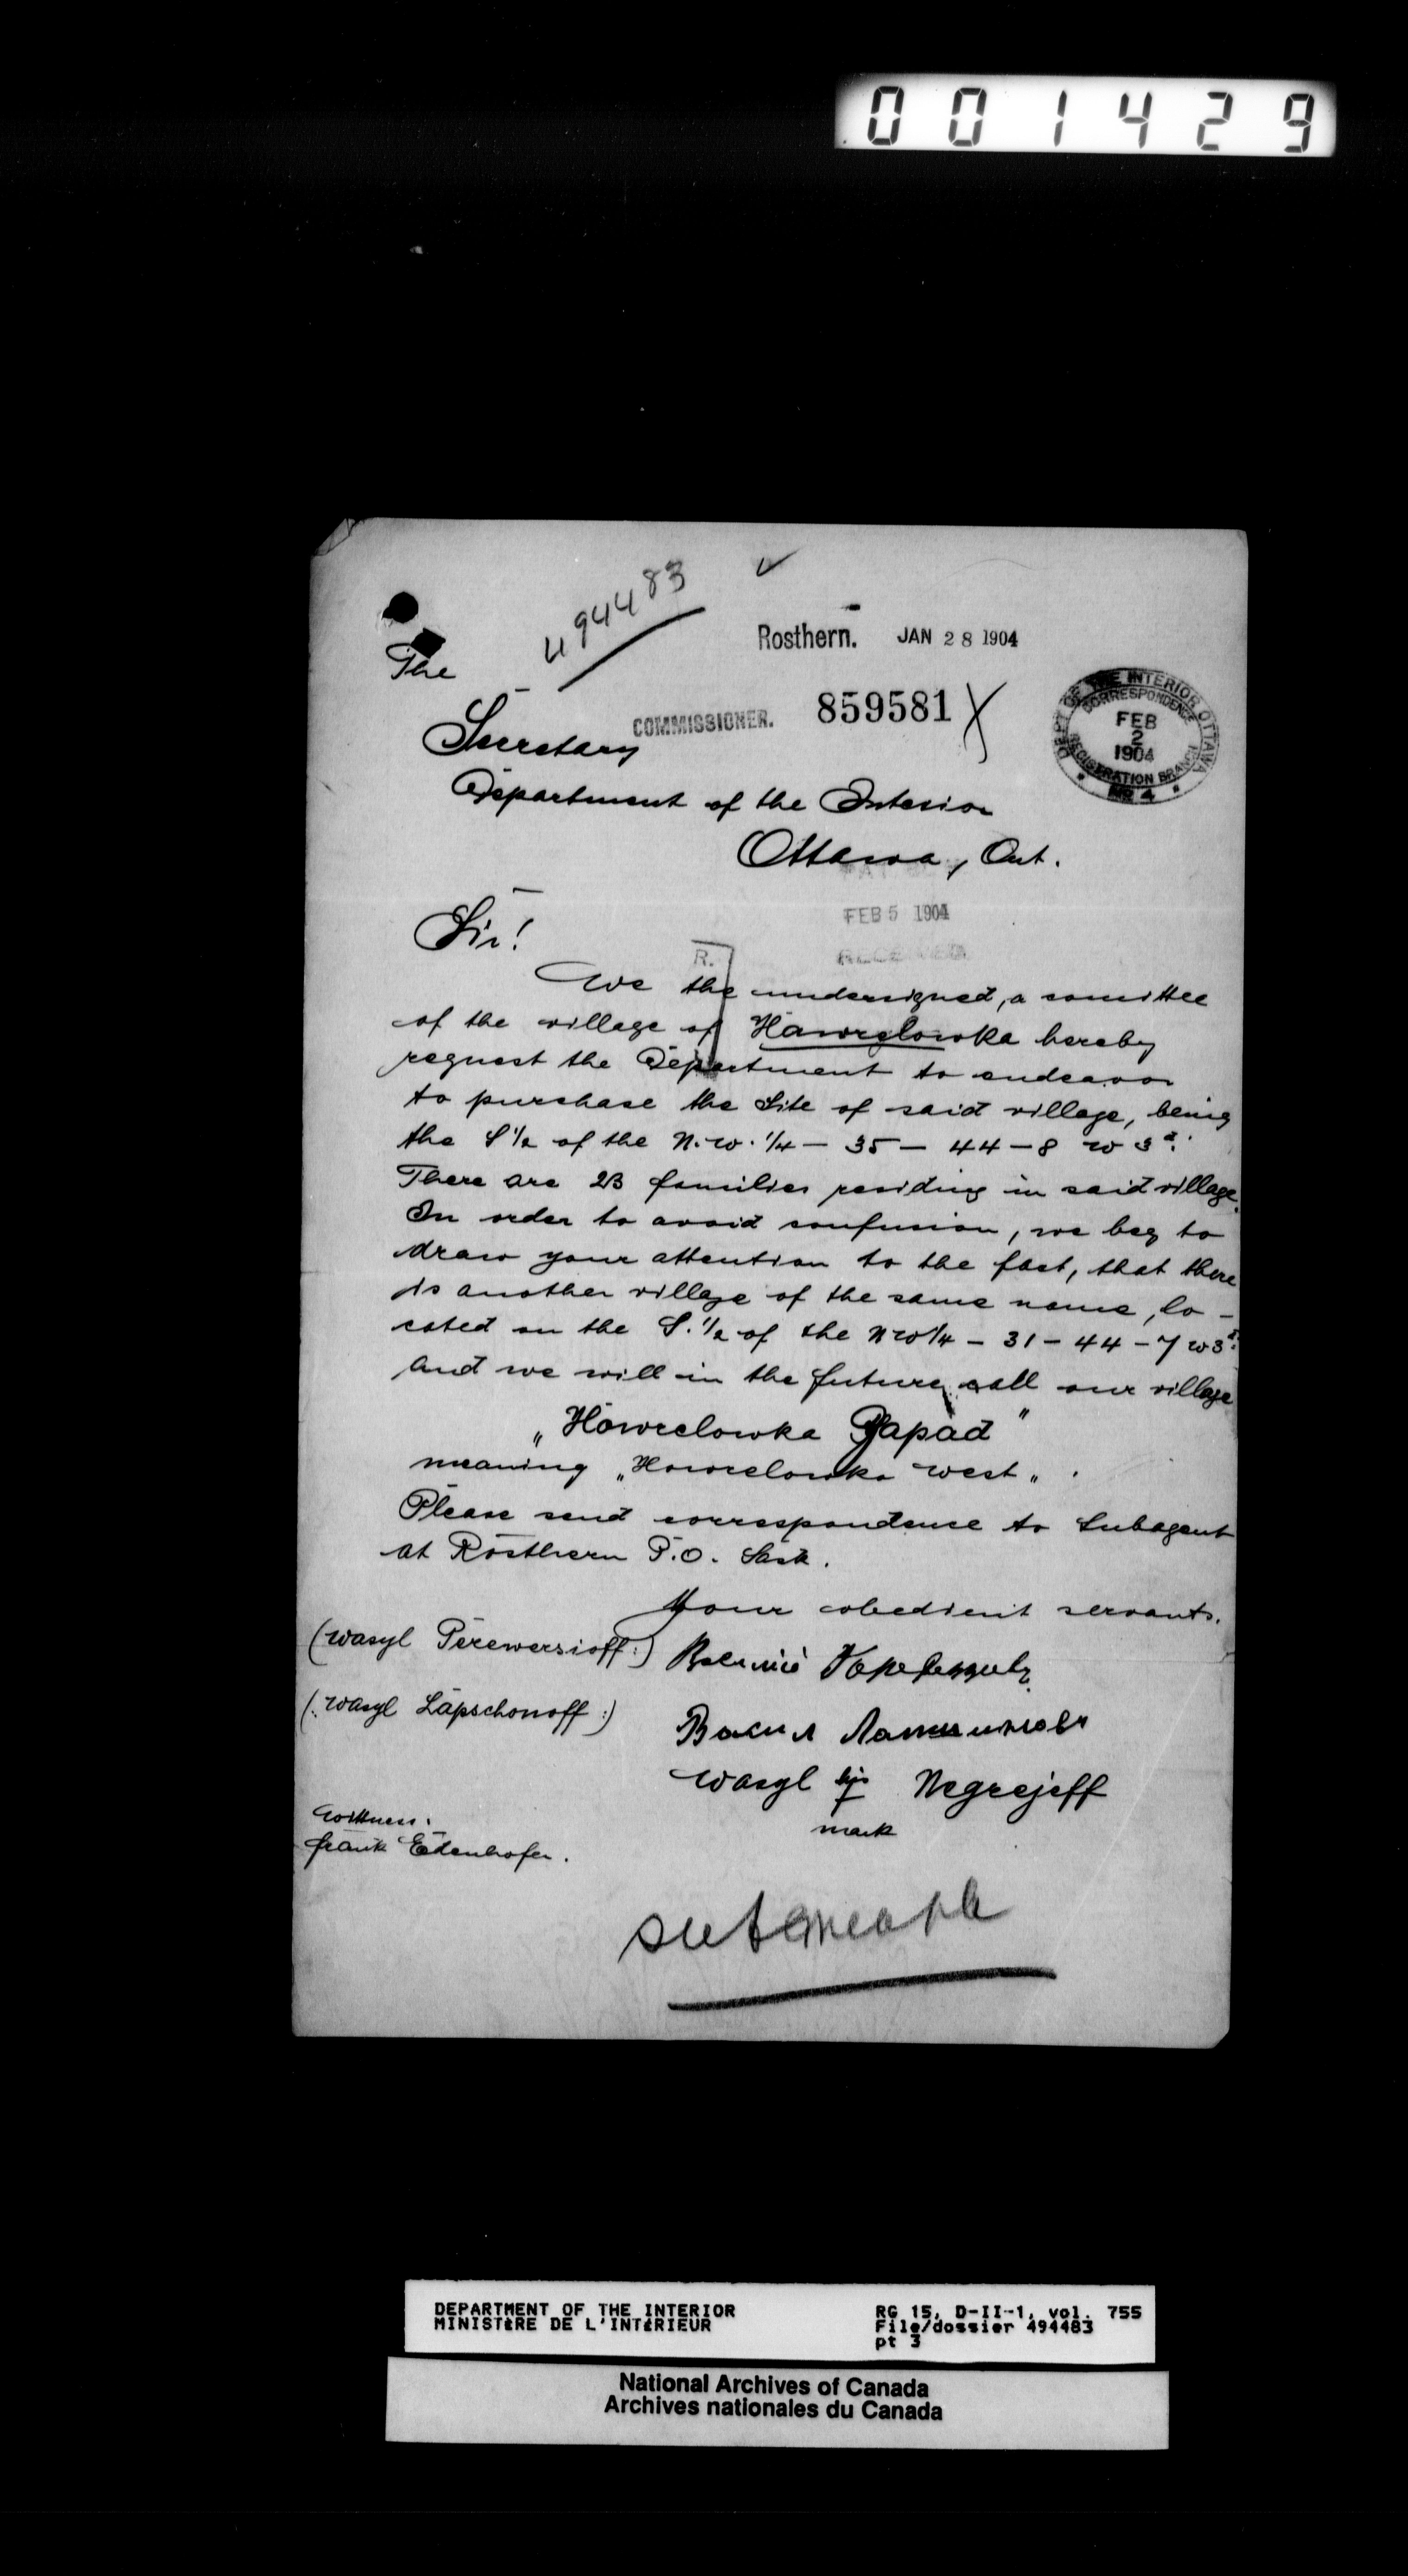 001429
494483
Rosthern. JAN 28 1904
The
Secretary
COMMISSIONER. 859581
DEPT OF THE INTERIOR OTTAWA
CORRESPONDENCE
FEB
2
1904
REGISTRATION BRANCH
No 4
Department of the Interior
Ottawa, Ont.
FEB 5 1904
RECEIVED
Sir!
R.
We the undersigned, a comittee
of the village of Hawrelowka hereby
request the Department to endeavor
to purchase the Site of said village, being
the S 1/2 of the N.W. 1/4 – 35 – 44 – 8 w 3d.
There are 23 families residing in said village.
In order to avoid confusion, we beg to
draw your attention to the fact, that there
is another village of the same name, lo-
cated on the S. 1/2 of the NW 1/4 – 31 – 44 – 7 w 3d.
and we will in the future call our village
„Hawrelowka Zapad"
meaning „Hawrelowka West„.
Please send correspondence to Subagent
at Rosthern P.O. Sask.
Your obedient servants.
(Wasyl Perewersioff:)
(:Wasyl Lapschonoff:)
Васил
Wasyl his Negrejeff
+
mark
Wittness:
Frank Edenhofer.
DEPARTMENT OF THE INTERIOR
MINISTÈRE DE L'INTÉRIEUR
RG 15, D-II-1, vol. 755
File/dossier 494483
pt 3
National Archives of Canada
Archives nationales du Canada